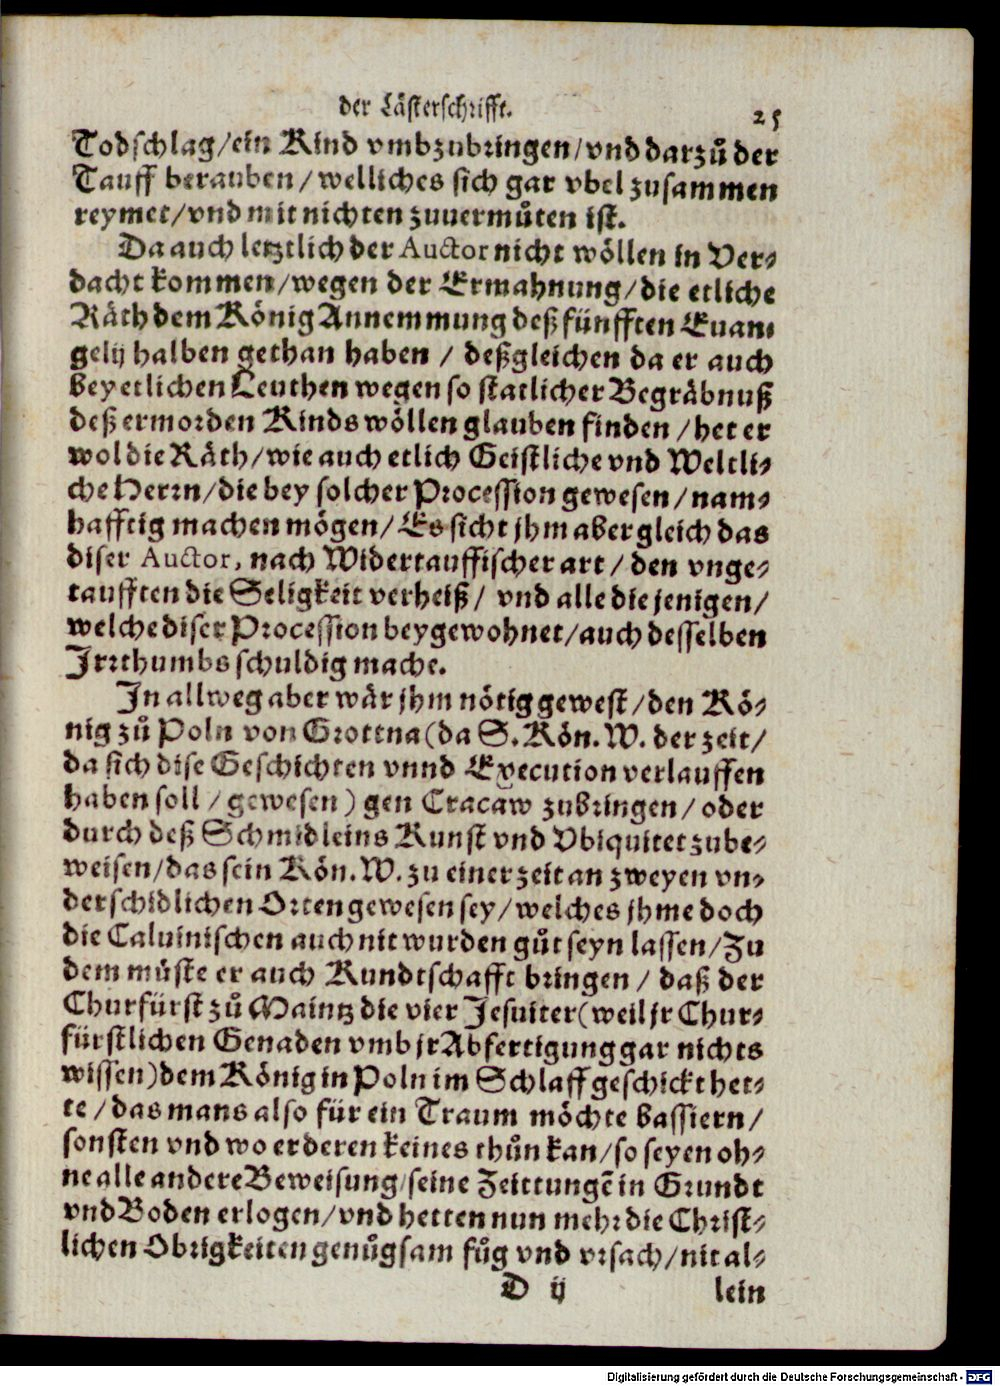 der Lästerschrifft. 25
Todschlag/ein Kind vmbzubringen/vnd darzů der
Tauff berauben/welliches sich gar vbel zusammen
reymet/vnd mit nichten zuuermůten ist.
Da auch letztlich der Auctor nicht wöllen in Ver⸗
dacht kommen/wegen der Ermahnung/die etliche
Räth dem König Annemmung deß fünfften Euan⸗
gelij halben gethan haben / deßgleichen da er auch
bey etlichen Leuthen wegen so statlicher Begräbnuß
deß ermorden Kinds wöllen glauben finden/het er
wol die Räth/wie auch etlich Geistliche vnd Weltli⸗
che Herrn/die bey solcher Procession gewesen/nam⸗
hafftig machen mögen/Es sicht jhm aber gleich das
diser Auctor, nach Widertauffischer art/den vnge⸗
taufften die Seligkeit verheiß/ vnd alle die jenigen/
welche diser Procession beygewohnet/auch desselben
Jrrthumbs schuldig mache.
Jn allweg aber wär jhm nötig gewest/den Kö⸗
nig zů Poln von Grottna(da S. Kön. W. der zeit/
da sich dise Geschichten vnnd Execution verlauffen
haben soll / gewesen) gen Cracaw zubringen/oder
durch deß Schmidleins Kunst vnd Vbiquitet zube⸗
weisen/das sein Kön. W. zu einer zeit an zweyen vn⸗
derschidlichen Orten gewesen sey/welches jhme doch
die Caluinischen auch nit wurden gůt seyn lassen/Zu
dem müste er auch Kundtschafft bringen / daß der
Churfürst zů Maintz die vier Jesuiter(weil jr Chur⸗
fürstlichen Genaden vmb jr Abfertigung gar nichts
wissen)dem König in Poln im Schlaff geschickt het⸗
te/das mans also für ein Traum möchte bassiern/
sonsten vnd wo er deren keines thůn kan/so seyen oh⸗
ne alle andere Beweisung/seine Zeittungē in Grundt
vnd Boden erlogen/vnd hetten nun mehr die Christ⸗
lichen Obrigkeiten genůgsam fůg vnd vrsach/nit al⸗
D ij lein
Digitalisierung gefördert durch die Deutsche Forschungsgemeinschaft - DFG